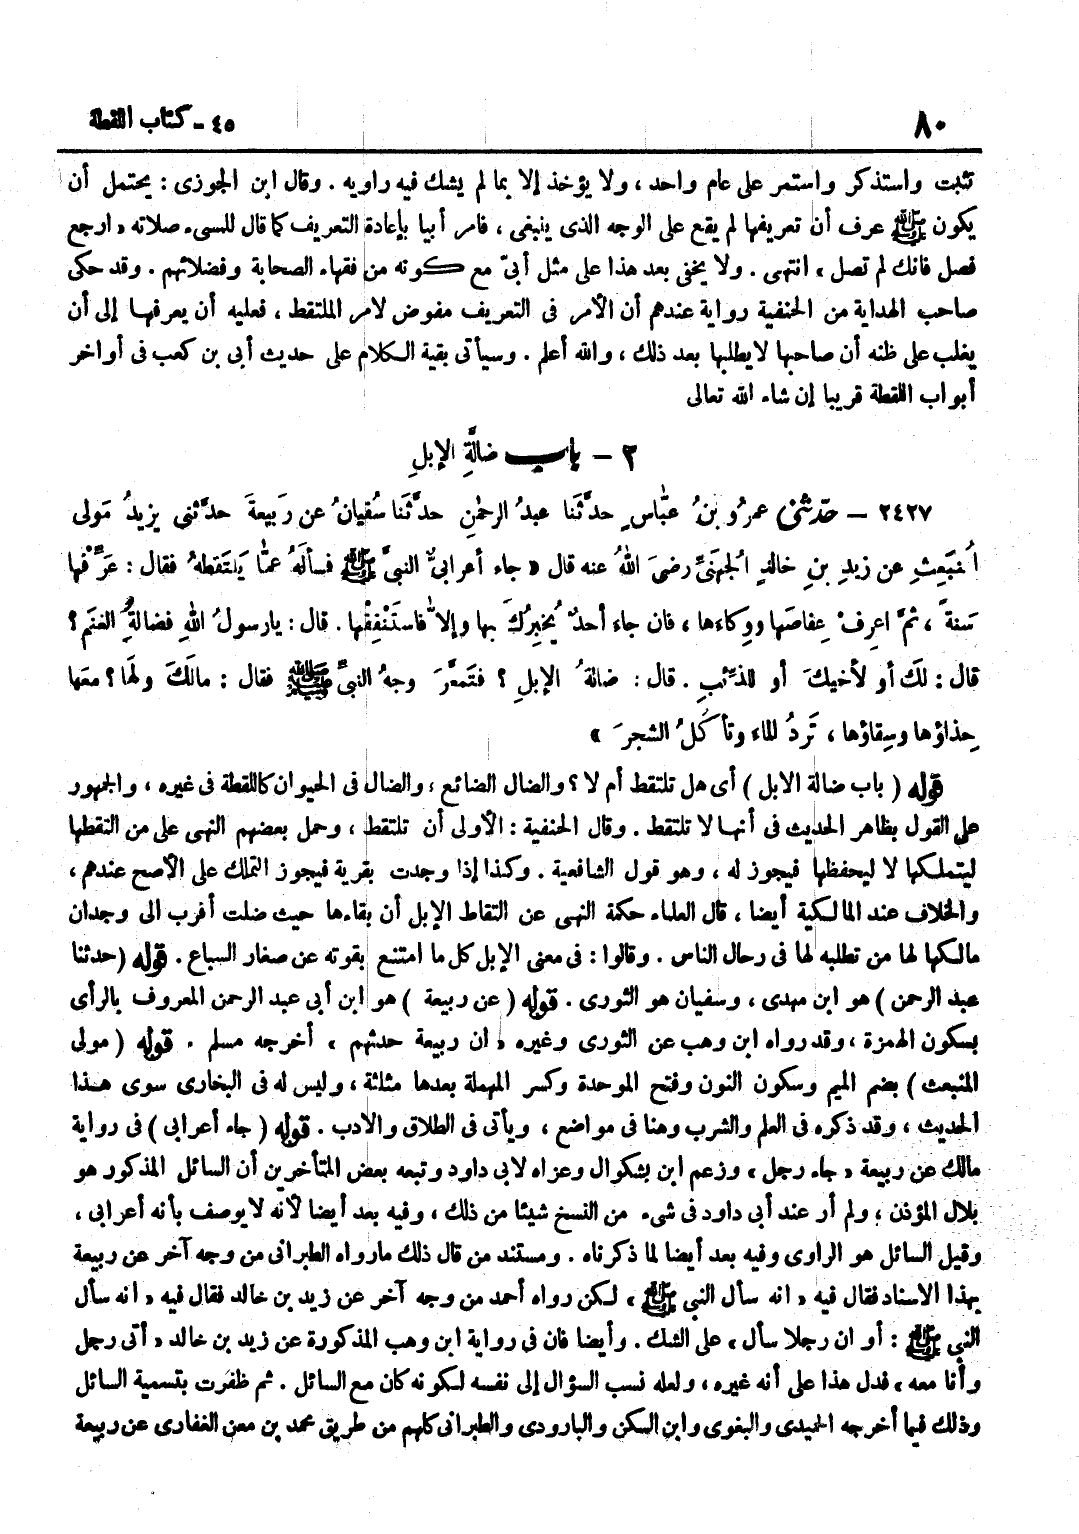 ٨٠
٤٥ - كتاب اللقطة
تثبت واستذكر واستمر على عام واحد ، ولا يؤخذ إلا بما لم يشك فيه راويه . وقال ابن الجوزى : يحتمل أن
يكون ﷺ عرف أن تعريفها لم يقع على الوجه الذى ينبغى ، فامر أبيا بإعادة التعريف كما قال للسىء صلاته « ارجع
فصل فانك لم تصل » انتهى . ولا يخفى بعد هذا على مثل أبىّ مع كونه من فقهاء الصحابة وفضلائهم . وقد حكى
صاحب الهداية من الحنفية رواية عندهم أن الأمر فى التعريف مفوض لامر الملتقط ، فعليه أن يعرفها إلى أن
يغلب على ظنه أن صاحبها لا يطلبها بعد ذلك ، والله أعلم . وسيأتى بقية الكلام على حديث أبى بن كعب فى أواخر
أبواب اللقطة قريبا إن شاء الله تعالى
٢ - باب ضالَّةِ الإبلِ
٢٤٢٧ - حدّثنى عمرُو بنُ عبَّاسٍ حدَّثَنا عبدُ الرحمٰنِ حدَّثَنا سُفيانُ عن رَبيعةَ حدَّثنى يزيدُ مَولى
اُلمنبَعِثِ عن زيدِ بنِ خالدٍ اُلجهَنىِّ رضىَ اللهُ عنه قال « جاء أعرابىٌّ النبىَّ ﷺ فسألَهُ عمَّا يَلتَقطهُ فقال : عَرِّفْها
سَنةً ، ثمَّ اعرِفْ عِفاصَها ووِكاءَها ، فان جاء أحدٌ يُخبِرُكَ بها وإلاَّ فاستَنْفِقْها . قال : يارسولَ اللهِ فضالةُ الغنَم ؟
قال : لكَ أو لأخيكَ أو للذِّئبِ . قال : ضالةُ الإبلِ ؟ فتَمعَّرَ وجهُ النبىِّ ﷺ فقال : مالَكَ ولهَا ؟ معَها
حِذاؤها وسِقاؤها ، تَرِدُ الماء وتأكلُ الشجرَ »
قوله ( باب ضالة الابل ) أى هل تلتقط أم لا ؟ والضال الضائع ، والضال فى الحيوان كاللقطة فى غيره ، والجمهور
على القول بظاهر الحديث فى أنها لا تلتقط . وقال الحنفية : الأولى أن تلتقط ، وحمل بعضهم النهى على من التقطها
ليتملكها لا ليحفظها فيجوز له ، وهو قول الشافعية . وكذا إذا وجدت بقرية فيجوز التملك على الأصح عندهم ،
والخلاف عند المالكية أيضا ، قال العلماء حكمة النهى عن التقاط الإبل أن بقاءها حيث ضلت أقرب الى وجدان
مالكها لها من تطلبه لها فى رحال الناس . وقالوا : فى معنى الإبل كل ما امتنع بقوته عن صغار السباع . قوله ( حدثنا
عبد الرحمن ) هو ابن مهدى ، وسفيان هو الثورى . قوله ( عن ربيعة ) هو ابن أبى عبد الرحمن المعروف بالرأى
بسكون الهمزة ، وقد رواه ابن وهب عن الثورى وغيره « ان ربيعة حدثهم » أخرجه مسلم . قوله ( مولى
المنبعث ) بضم الميم وسكون النون وفتح الموحدة وكسر المهملة بعدها مثلثة ، وليس له فى البخارى سوى هذا
الحديث ، وقد ذكره فى العلم والشرب وهنا فى مواضع ، ويأتى فى الطلاق والادب . قوله ( جاء أعرابى ) فى رواية
مالك عن ربيعة « جاء رجل » وزعم ابن بشكوال وعزاه لابى داود وتبعه بعض المتأخرين أن السائل المذكور هو
بلال المؤذن ، ولم أر عند أبى داود فى شىء من النسخ شيئا من ذلك ، وفيه بعد أيضا لأنه لا يوصف بأنه أعرابى ،
وقيل السائل هو الراوى وفيه بعد أيضا لما ذكرناه . ومستند من قال ذلك مارواه الطبرانى من وجه آخر عن ربيعة
بهذا الاسناد فقال فيه « انه سأل النبى ﷺ » لكن رواه أحمد من وجه آخر عن زيد بن خالد فقال فيه « انه سأل
النبى ﷺ : أو ان رجلا سأل » على الشك . وأيضا فان فى رواية ابن وهب المذكورة عن زيد بن خالد « أتى رجل
وأنا معه » فدل هذا على أنه غيره ، ولعله نسب السؤال إلى نفسه لكونه كان مع السائل . ثم ظفرت بتسمية السائل
وذلك فيما أخرجه الحميدى والبغوى وابن السكن والبارودى والطبرانى كلهم من طريق محمد بن معن الغفارى عن ربيعة